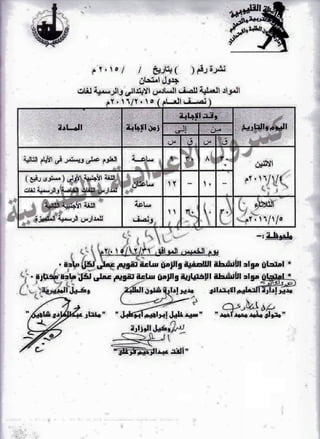 القليوبية
نشرة رقم ( ) بتاريخ / / ٢٠١٥ م
جدول امتحان
المواد العملية للصف السادس الابتدائى والرسمية لغات
(نصف العام) ٢٠١٦/٢٠١٥ م
اليوم والتاريخ وقت الإجابة زمن الإجابة المادة
من إلى
ق س ق س
الاثنين
٢٠١٦/١/٤ م
٨ ساعة العلوم عملى ويستمر فى الأيام التالية
- ١٠ - ١٢ ساعتان اللغة الأجنبية الأولى (مستوى رفيع)
للمدارس اللغات الخاصة والرسمية لغات
الثلاثاء
٢٠١٦/١/٥ م
ساعة ونصف اللغة الأجنبية الثانية
للمدارس الرسمية المتميزة
كنترول الاعدادية بالقليوبية
ملحوظة :-
يوم الخميس الموافق ٢٠١٥/١٢/٣١ م
* امتحان مواد الأنشطة اللاصفية والزمن ساعة تقويم عملى لكل مادة.
* امتحان مواد الأنشطة الإختيارية والزمن ساعة تقويم عملى لكل مادة مختارة.
مدير إدارة التعليم الابتدائى مدير إدارة شئون الطلبة وكيل المديرية
متولى محمد محمد أحمد سيد خليل إبراهيم أبو طبل مختار عبد الهادى شاهين
وكيل الوزارة
ألفت عبد الرحيم فرغلى